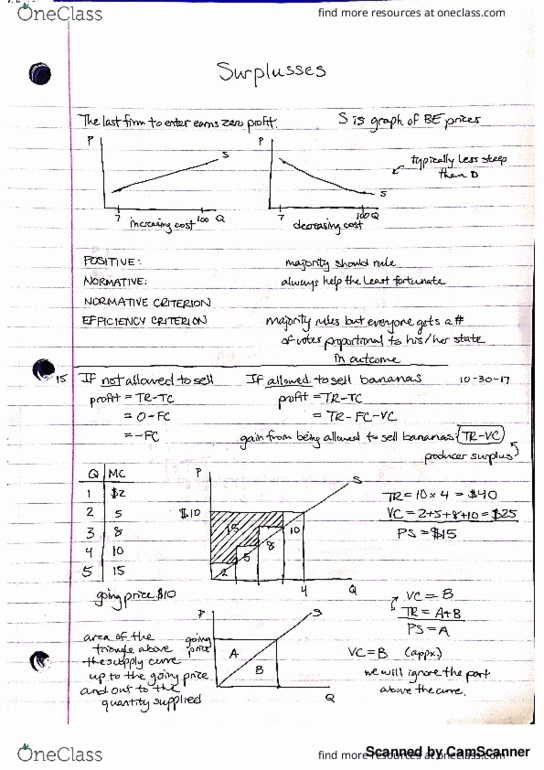 OneClass
find more resources at oneclass.com
Surplusses
The last firm to enter earns zero profit.
S is graph of BE prices
P
S
7
100 Q
increasing cost
P
S
7
100 Q
decreasing cost
typically less steep
than D
POSITIVE:
majority should rule
NORMATIVE:
always help the least fortunate
NORMATIVE CRITERION
EFFICIENCY CRITERION
majority rules but everyone gets a #
of votes proportional to his/her stake
in outcome
15
If not allowed to sell
If allowed to sell bananas
10-30-17
profit = TR-TC
= 0-FC
= -FC
profit = TR-TC
= TR-FC-VC
gain from being allowed to sell bananas: TR-VC
producer surplus
Q MC
1 $2
2 5
3 8
4 10
5 15
going price $10
P
S
$10
15
2
5
8
10
4
Q
TR = 10 x 4 = $40
VC = 2+5+8+10 = $25
PS = $15
area of the
triangle above
the supply curve
up to the going price
and out to the
quantity supplied
P
S
going
price
A
B
Q
VC = B
TR = A+B
PS = A
VC = B (appx)
we will ignore the part
above the curve.
OneClass
find more resources at oneclass.com
Scanned by CamScanner